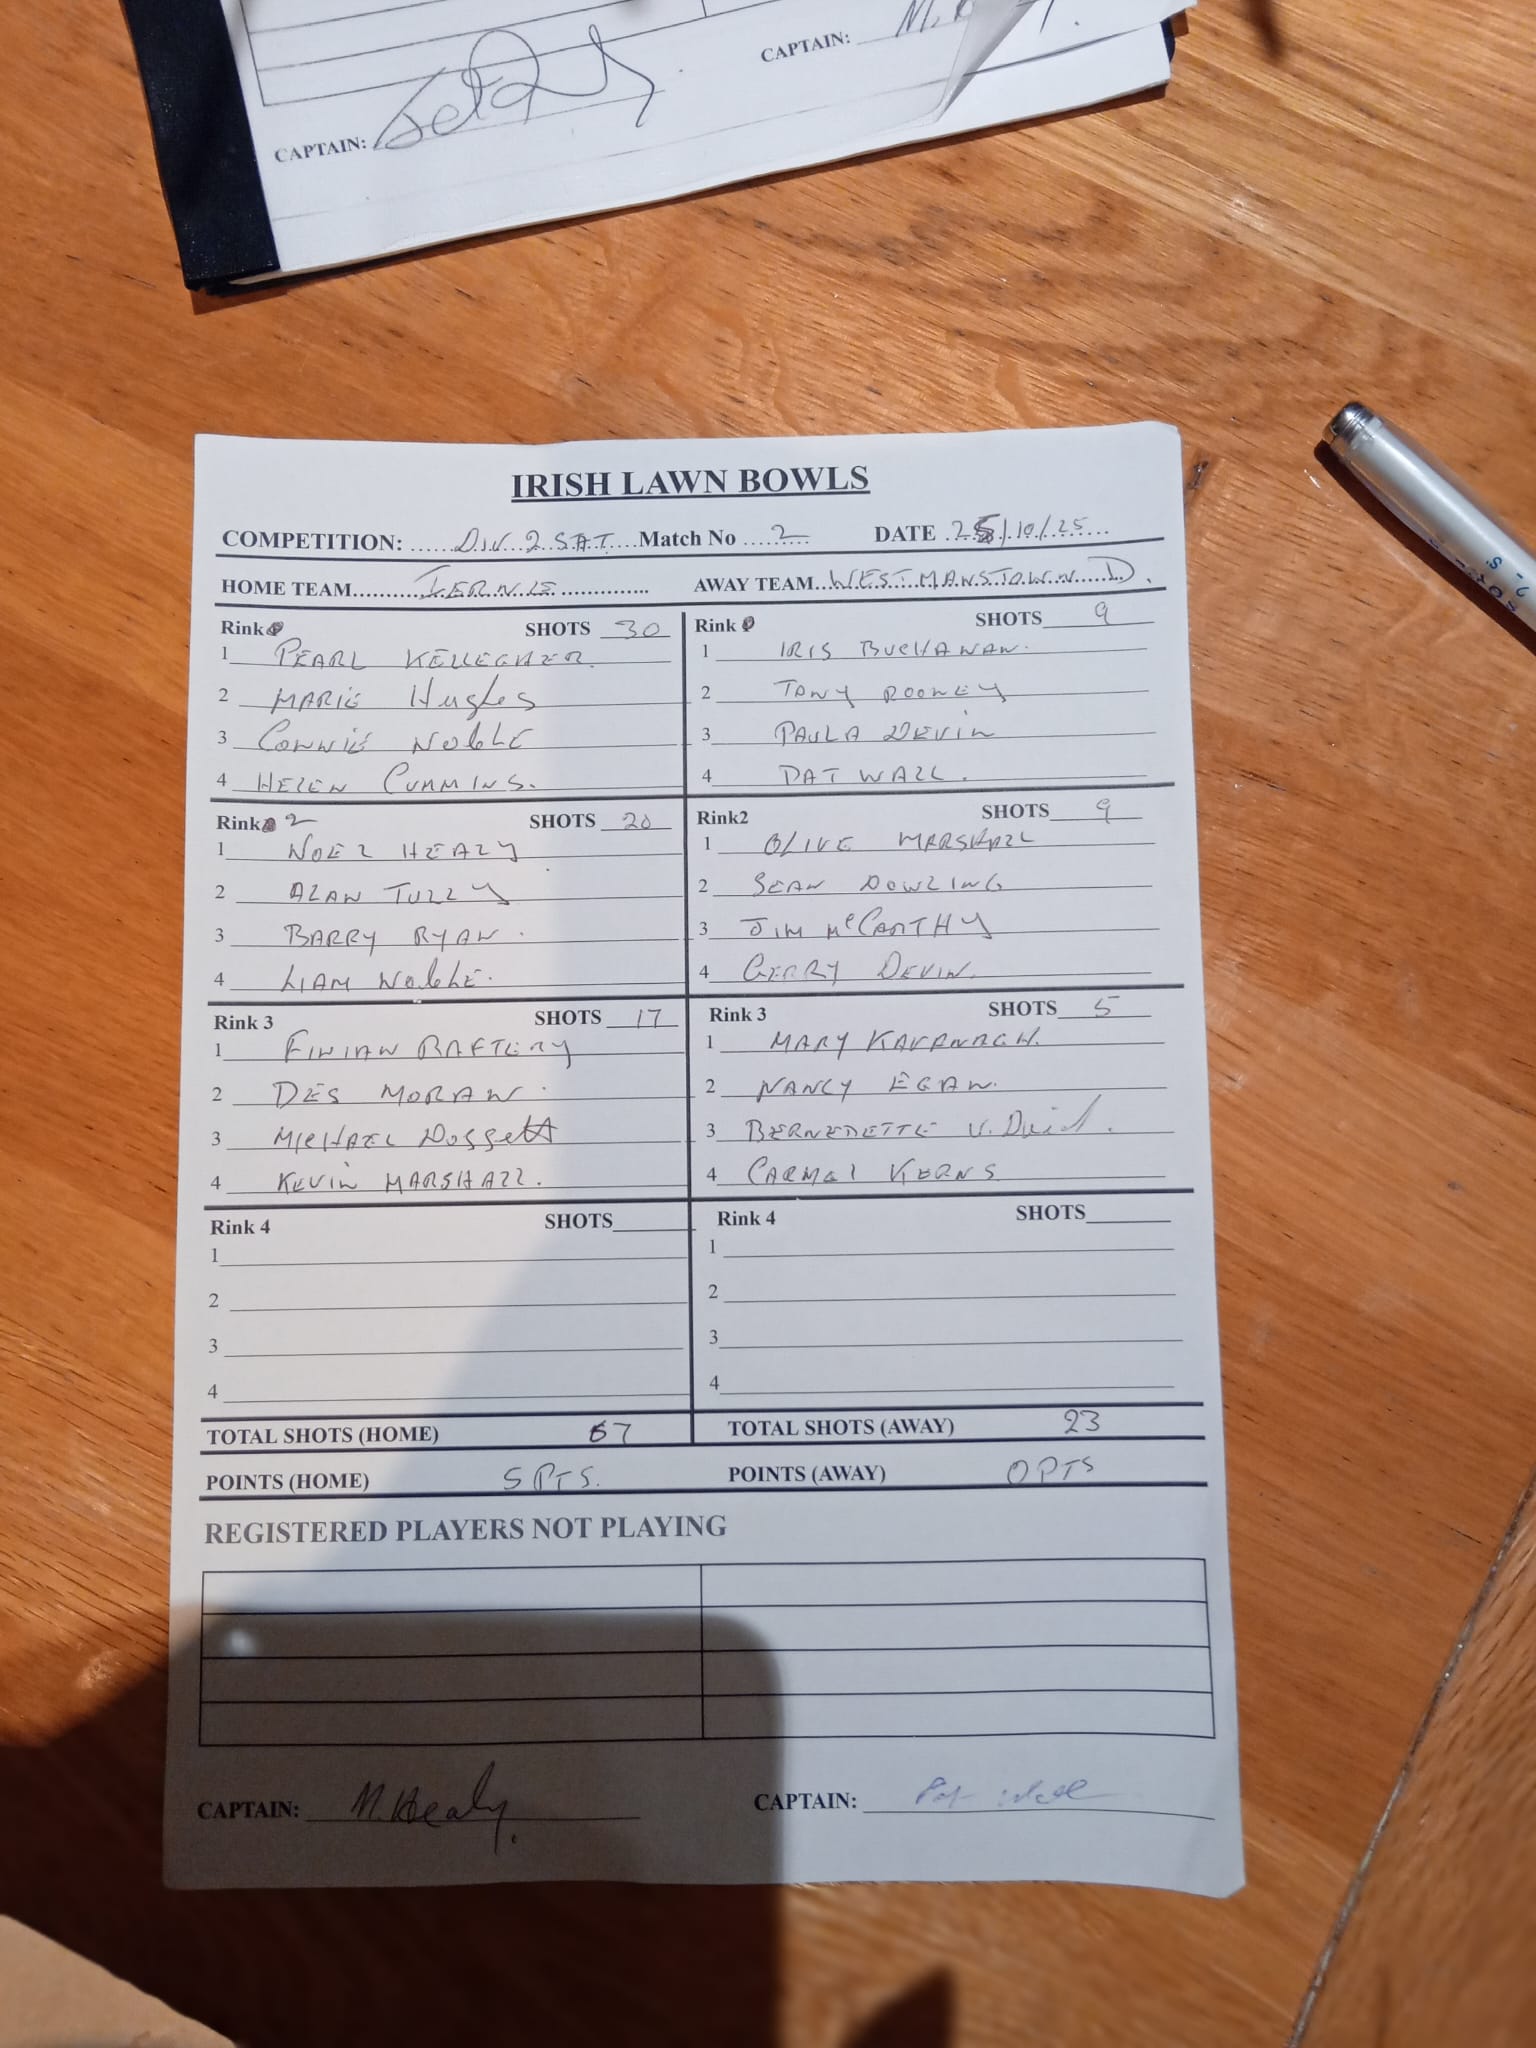 CAPTAIN:
CAPTAIN:
IRISH LAWN BOWLS
COMPETITION: DIV 2 SAT Match No 2 DATE 25/10/25
HOME TEAM IERNE AWAY TEAM WESTMANSTOWN D.
Rink SHOTS 30
1 PEARL KELLEGHER.
2 MARIE Hughes
3 CONNIE NOBLE
4 HELEN CUMMINS.
Rink SHOTS 9
1 IRIS BUCHANAN.
2 TONY ROONEY
3 PAULA DEVIN
4 PAT WALL.
Rink 2 SHOTS 20
1 NOEL HEALY
2 ALAN TULLY
3 BARRY RYAN.
4 LIAM NOBLE.
Rink2 SHOTS 9
1 OLIVE MARSHALL
2 SEAN DOWLING
3 JIM McCARTHY
4 GERRY DEVIN.
Rink 3 SHOTS 17
1 FINIAN RAFTERY
2 DES MORAN.
3 MICHAEL Doggett
4 KEVIN MARSHALL.
Rink 3 SHOTS 5
1 MARY KAVANAGH.
2 NANCY EGAN.
3 BERNEDETTE
4 CARMEL KERNS
Rink 4 SHOTS
1
2
3
4
Rink 4 SHOTS
1
2
3
4
TOTAL SHOTS (HOME) 67 TOTAL SHOTS (AWAY) 23
POINTS (HOME) 5 PTS. POINTS (AWAY) 0 PTS
REGISTERED PLAYERS NOT PLAYING
CAPTAIN: N. Healy. CAPTAIN: Pat Wall